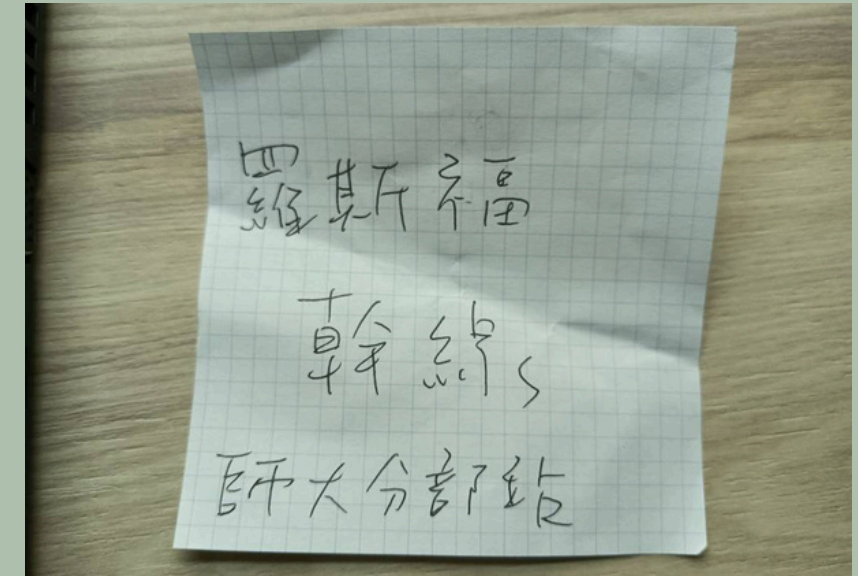 羅斯福
幹線、
師大分部站